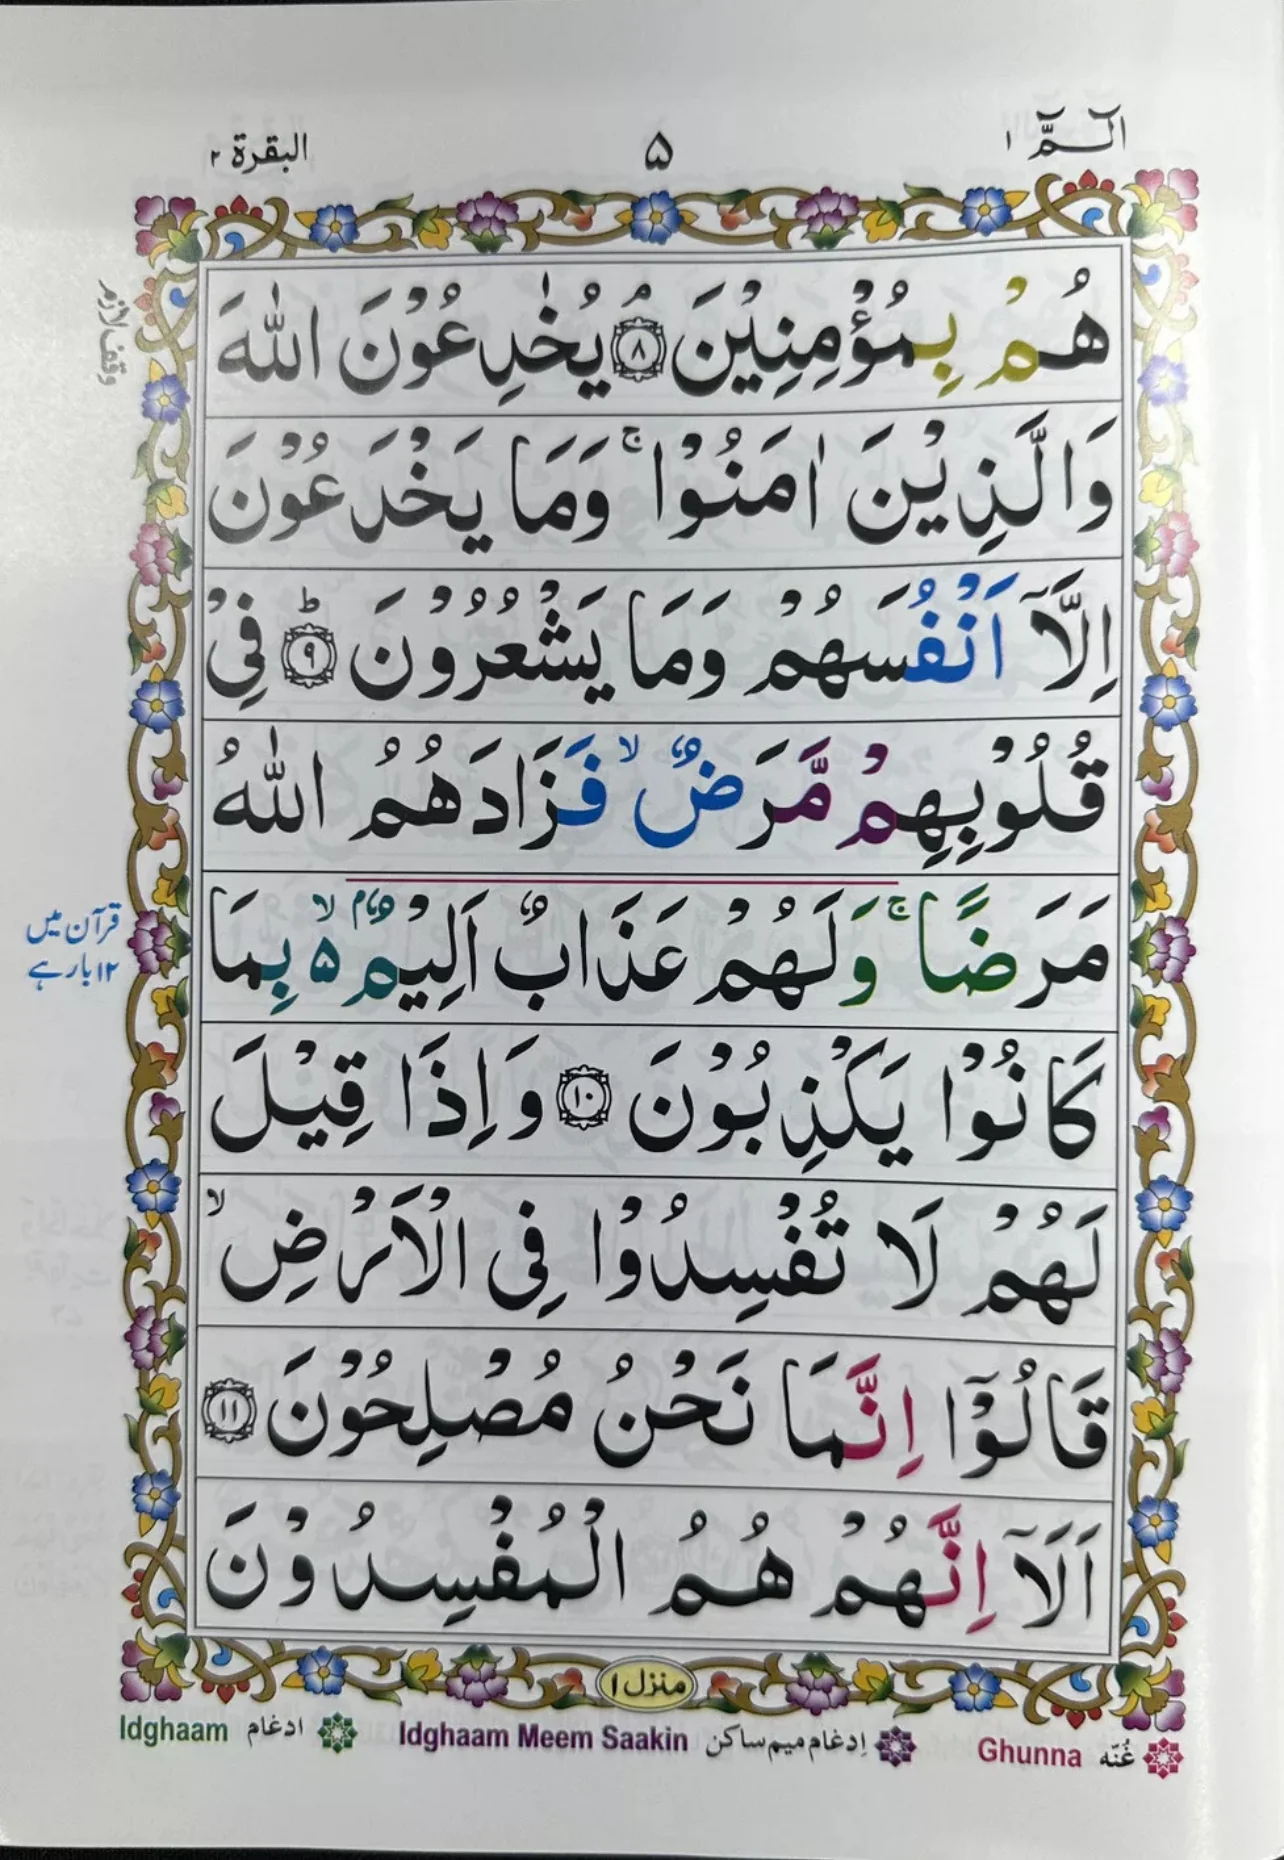 الٓـمّٓ ١
۵
البقرة ٢
هُمْ بِمُؤْمِنِيْنَ ۘ ﴿٨﴾ يُخٰدِعُوْنَ اللّٰهَ
وقف لازم
وَالَّذِيْنَ اٰمَنُوْا ۚ وَمَا يَخْدَعُوْنَ
اِلَّاۤ اَنْفُسَهُمْ وَمَا يَشْعُرُوْنَ ؕ ﴿٩﴾ فِيْ
قُلُوْبِهِمْ مَّرَضٌ ۙ فَزَادَهُمُ اللّٰهُ
مَرَضًا ۚ وَلَهُمْ عَذَابٌ اَلِيْمٌۢ ۵ۙ بِمَا
قرآن میں
١٢ بار ہے
كَانُوْا يَكْذِبُوْنَ ﴿١٠﴾ وَاِذَا قِيْلَ
لَهُمْ لَا تُفْسِدُوْا فِي الْاَرْضِ ۙ
قَالُوْۤا اِنَّمَا نَحْنُ مُصْلِحُوْنَ ﴿١١﴾
اَلَاۤ اِنَّهُمْ هُمُ الْمُفْسِدُوْنَ
منزل ١
غُنّه Ghunna
اِدغام میم ساکن Idghaam Meem Saakin
ادغام Idghaam